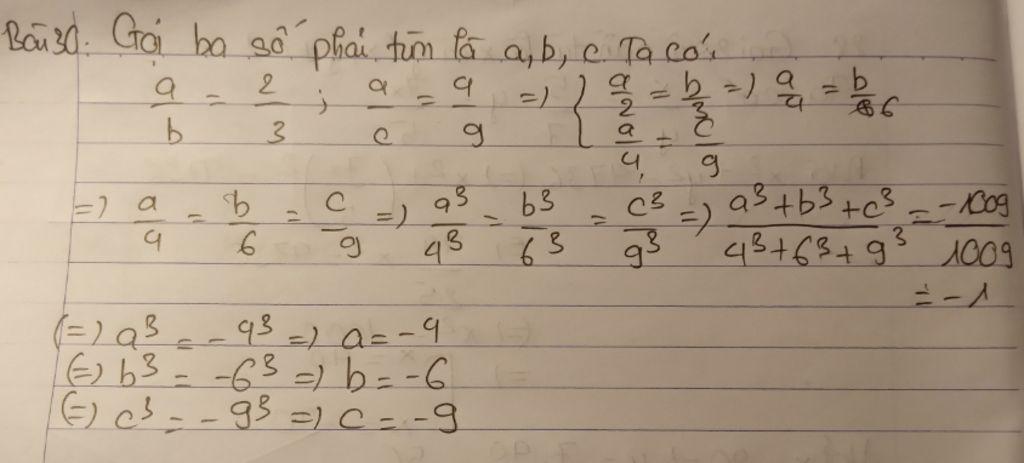 Bài 30: Gọi ba số phải tìm là a, b, c. Ta có:
a/b = 2/3 ; a/c = 4/9 => { a/2 = b/3 => a/4 = b/6
a/4 = c/9
=> a/4 = b/6 = c/9 => a³/4³ = b³/6³ = c³/9³ => (a³+b³+c³)/(4³+6³+9³) = -1009/1009
= -1
(=) a³ = -4³ => a = -4
(=) b³ = -6³ => b = -6
(=) c³ = -9³ => c = -9